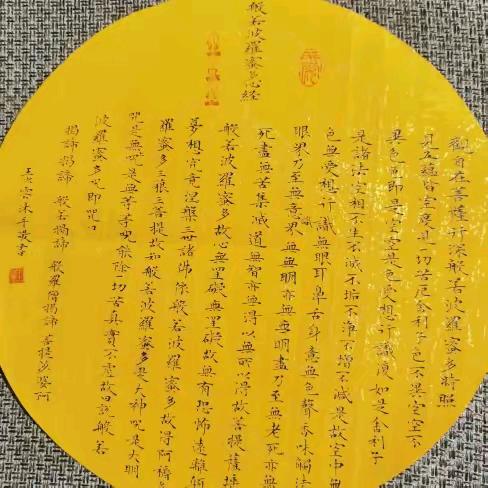 般若波羅蜜多心經
觀自在菩薩行深般若波羅蜜多時照
見五蘊皆空度一切苦厄舍利子色不異空空不
異色色即是空空是色受想行識復如是舍利子
是諸法空相不生不滅不垢不淨不增不減是故空中無
色無受想行識無眼耳鼻舌身意無色聲香味觸法
眼界乃至無意識界無無明亦無無明盡乃至無老死亦無
死盡無苦集滅道無智亦無得以無所得故菩提薩埵
般若波羅蜜多故心無罣礙無罣礙故無有恐怖遠離顛
夢想究竟涅槃三世諸佛依般若波羅蜜多故得阿耨
羅蜜多三藐三菩提故知般若波羅蜜多是大神咒是大明
咒是無咒是無等等咒能除一切苦真實不虛故曰說般若
波羅蜜多咒即咒曰
揭諦揭諦 般若揭諦 般羅僧揭諦 菩提沙婆訶
雲沐手敬書